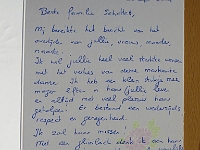 Beste familie Scholten,
Mij bereikte het bericht van het
overlijden van jullie, vrouw, moeder,
Ik wil jullie heel veel sterkte wensen
met het verlies van deze markante
Ik heb een klein stukje met
mogen in haar/jullie leven
en altijd met veel plezier haar
geholpen. Er bestond een wederzijds
respect en genegenheid.
Ik zal haar missen!
Met een glimlach denk ik aan haar